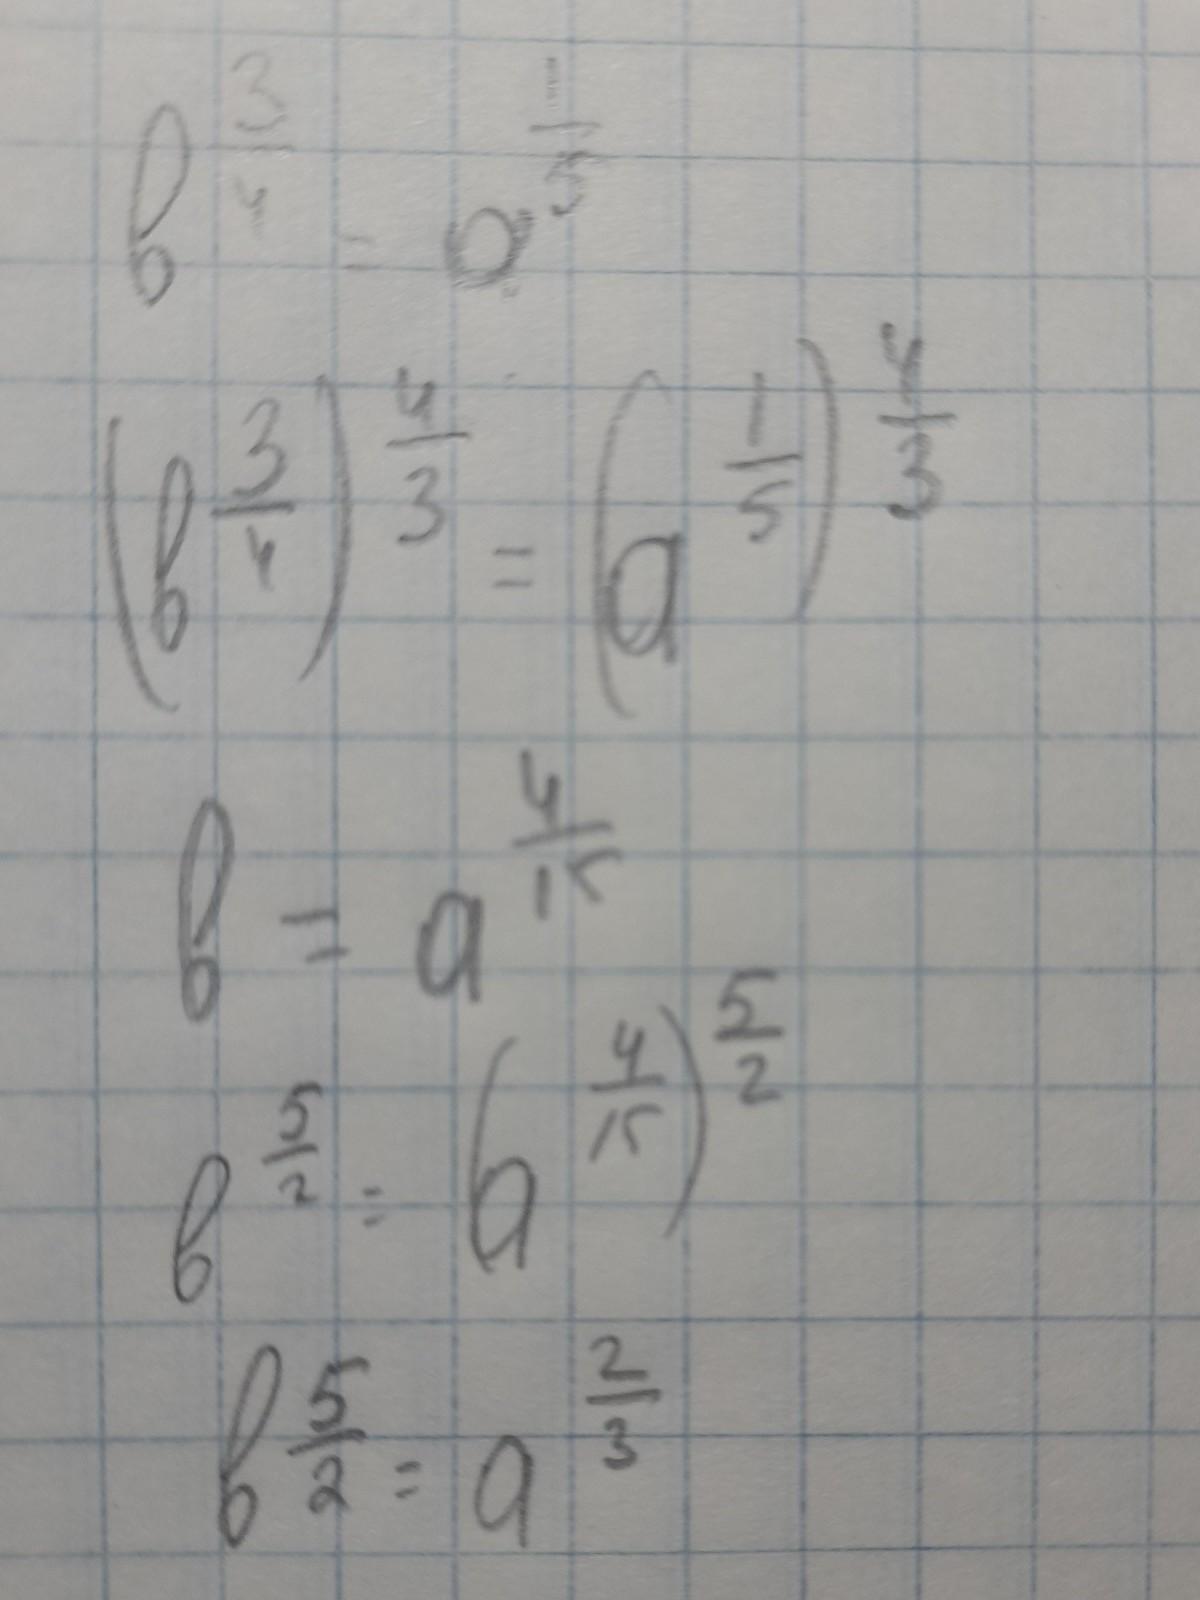 b^{3/4} = a^{1/5}
(b^{3/4})^{4/3} = (a^{1/5})^{4/3}
b = a^{4/15}
b^{5/2} = (a^{4/15})^{5/2}
b^{5/2} = a^{2/3}